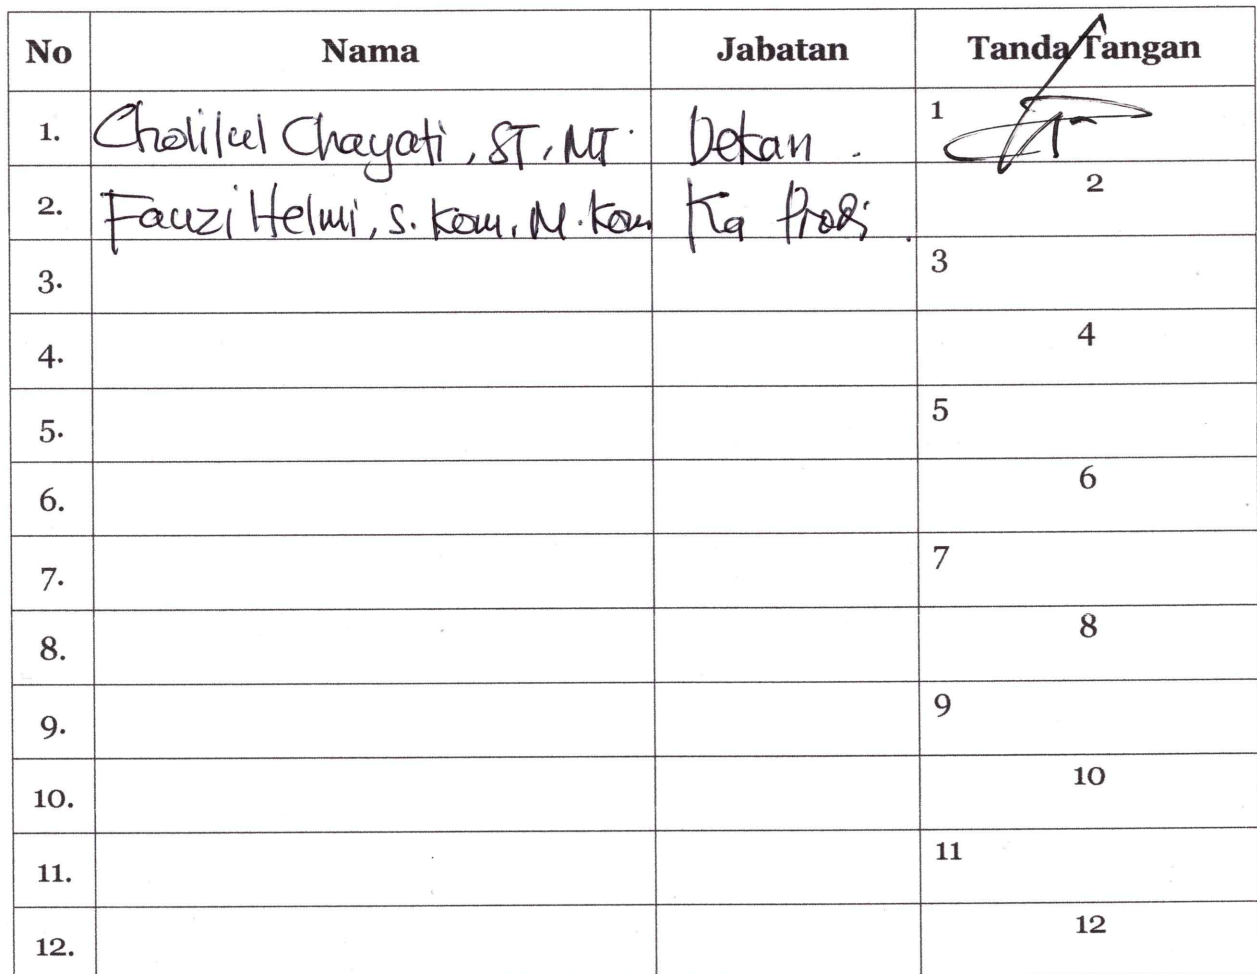 No Nama Jabatan Tanda Tangan
1. Cholilul Chayati, ST, MT. Dekan. 1
2. Fauzi Helmi, S. Kom, M. Kom Ka Prodi. 2
3. 3
4. 4
5. 5
6. 6
7. 7
8. 8
9. 9
10. 10
11. 11
12. 12